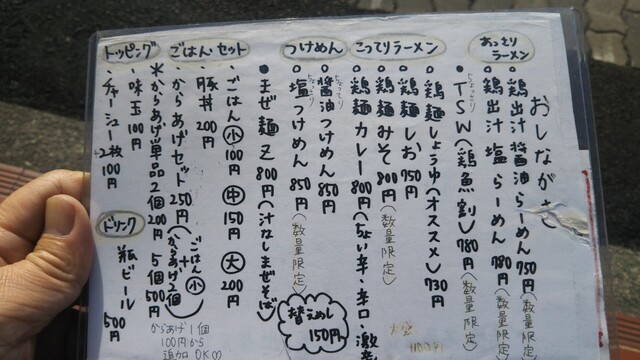 おしながき
あっさりラーメン
○鶏出汁醤油らーめん 750円(数量限定)
○鶏出汁塩らーめん 780円(数量限定)
●TSW(鶏魚介割) 780円(数量限定)
こってりラーメン
○鶏麺しょうゆ(オススメ) 730円
○鶏麺しお 750円
○鶏麺みそ 800円(数量限定)
○鶏麺カレー 800円(ちょい辛・辛口・激辛
つけめん
○醤油つけめん 850円
○塩つけめん 850円(数量限定)
●まぜ麺Z 800円(汁なしまぜそば)
替えめし
150円
ごはんセット
・ごはん 小 100円 中 150円 大 200円
・豚丼 200円
・からあげセット 250円(ごはん小+からあげ2個)
*からあげ単品 2個 200円 5個 500円
からあげ1個
100円から
追加OK♡
トッピング
・味玉 100円
・チャーシュー2枚 100円
ドリンク
・瓶ビール 500円